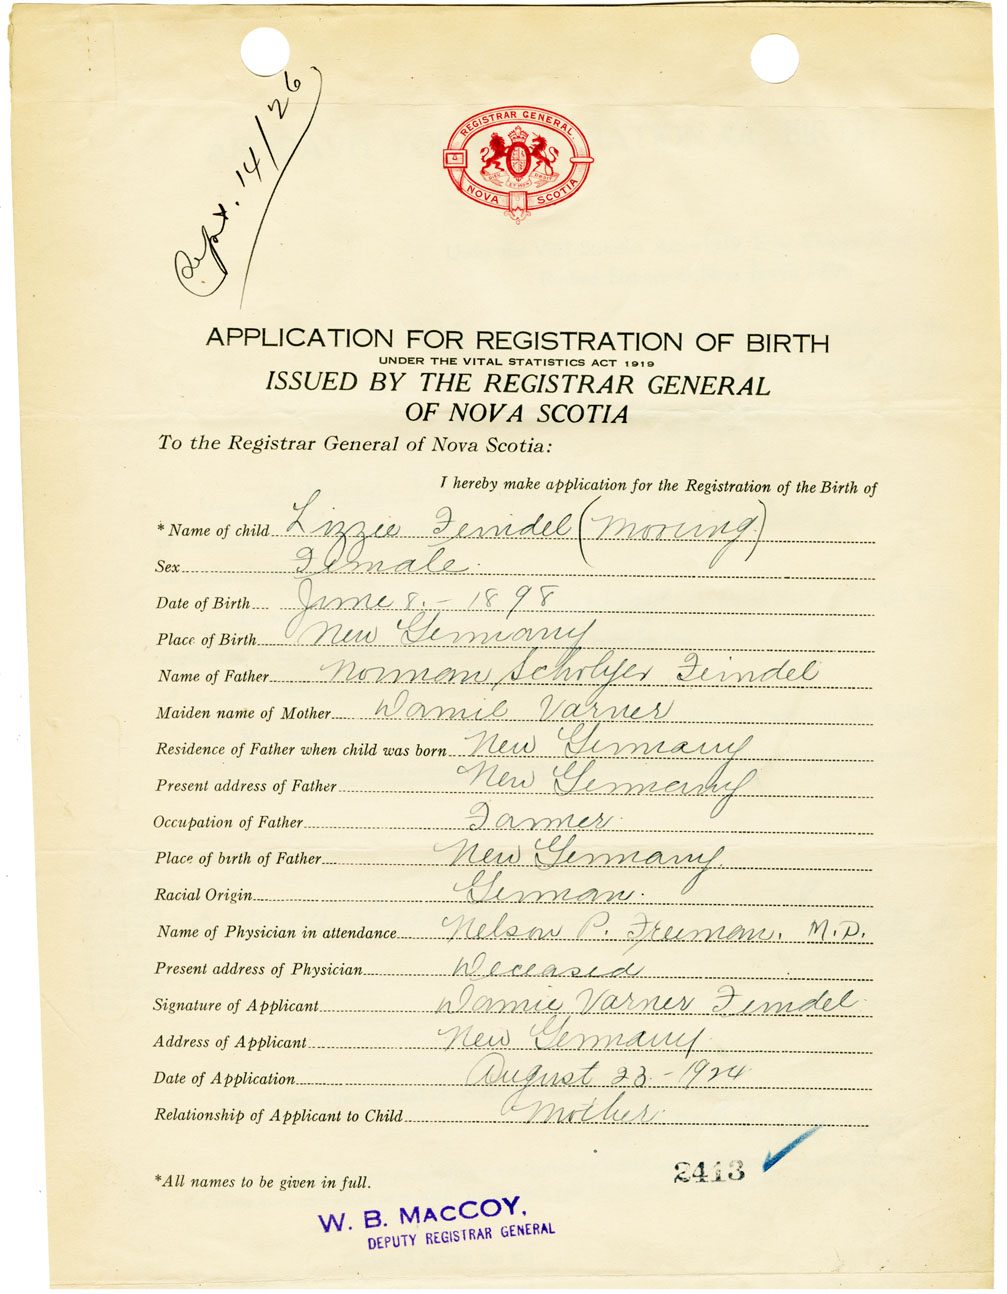 Sept. 14/26
REGISTRAR GENERAL
NOVA SCOTIA
APPLICATION FOR REGISTRATION OF BIRTH
UNDER THE VITAL STATISTICS ACT 1919
ISSUED BY THE REGISTRAR GENERAL
OF NOVA SCOTIA
To the Registrar General of Nova Scotia:
I hereby make application for the Registration of the Birth of
* Name of child Lizzie Feindel (Morung)
Sex Female.
Date of Birth June 8. - 1898
Place of Birth New Germany
Name of Father Norman Feindel
Maiden name of Mother Damie Varner
Residence of Father when child was born New Germany
Present address of Father New Germany
Occupation of Father Farmer.
Place of birth of Father New Germany.
Racial Origin German.
Name of Physician in attendance Nelson P. Freeman. M.D.
Present address of Physician Deceased
Signature of Applicant Damie Varner Feindel.
Address of Applicant New Germany.
Date of Application August 23 - 1924
Relationship of Applicant to Child Mother.
2413
*All names to be given in full.
W. B. MacCOY,
DEPUTY REGISTRAR GENERAL